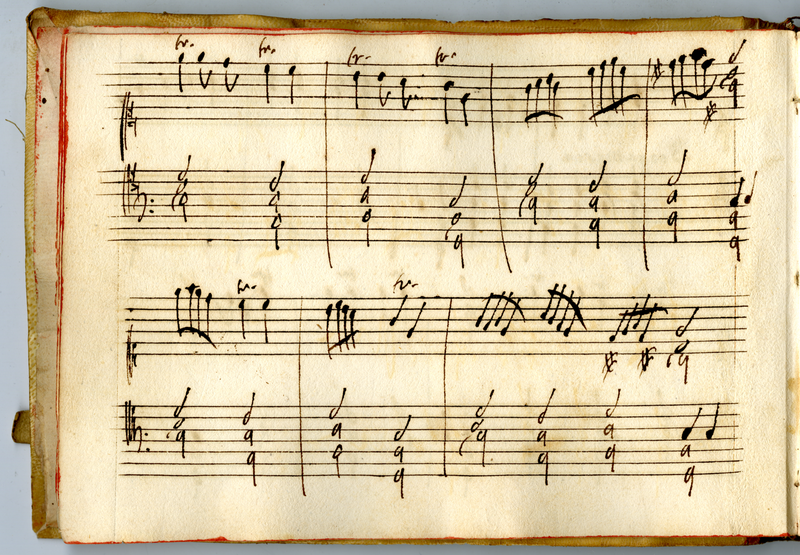 tr. tr. tr. tr.
tr. tr.